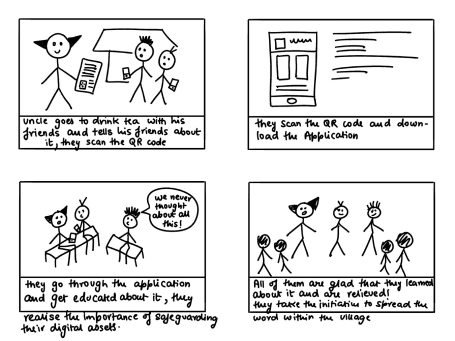 uncle goes to drink tea with his
friends and tells his friends about
it, they scan the QR code
they scan the QR code and down-
load the Application
we never
thought
about all
this!
they go through the application
and get educated about it, they
realise the importance of safeguarding
their digital assets.
All of them are glad that they learned
about it and are relieved!
they take the initiative to spread the
word within the village